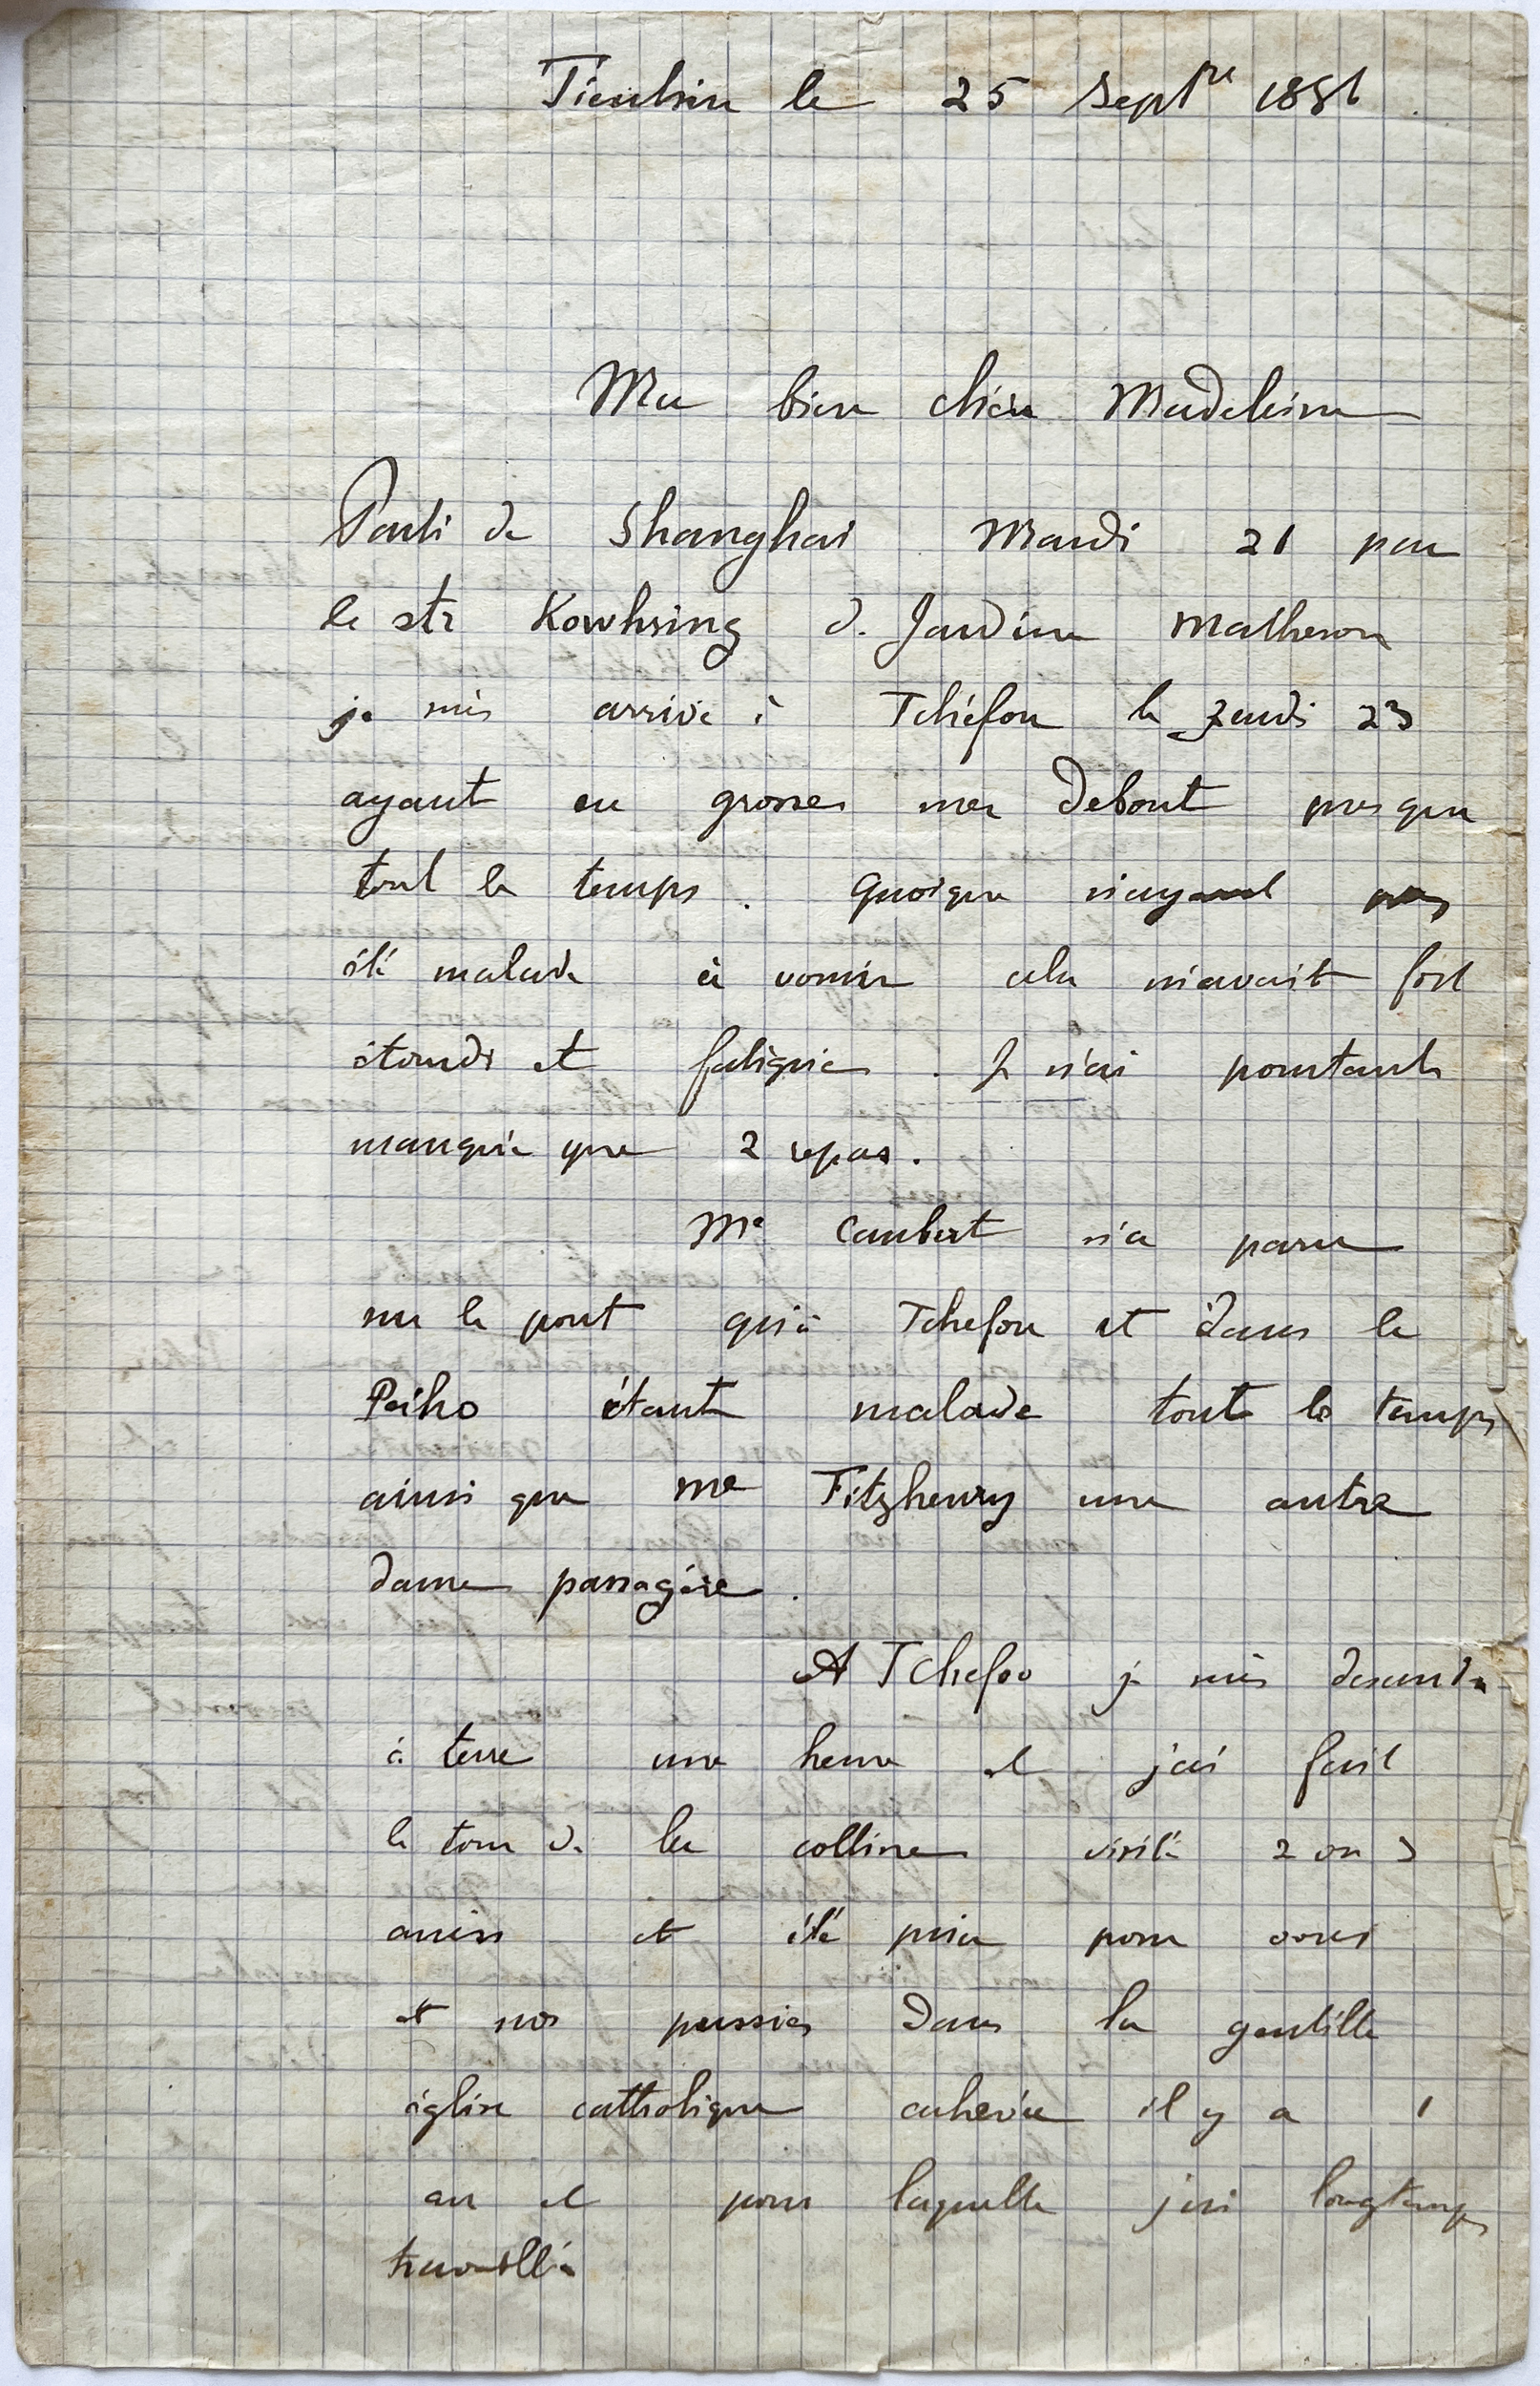 Tientsin le 25 Septre 1886.
Ma bien chère Madeleine
Parti de Shanghai Mardi 21 par
le str Kowhsing de Jardine Matheson
je suis arrivé à Tchéfou le Jeudi 23
ayant eu grosse mer debout presque
tout le temps. Quoique n'ayant pas
été malade à vomir cela m'avait fort
étourdi et fatigué. Je n'ai pourtant
manqué que 2 repas.
Me Caubert n'a paru
sur le pont qu'à Tchefou et dans le
Peiho étant malade tout le temps
ainsi que Me Fitzhenry une autre
dame passagère.
A Tchefoo je suis descendu
à terre une heure et j'ai fait
le tour de la colline visité 2 ou 3
amis et été prier pour vous
et nos pussies dans la gentille
église catholique achevée il y a 1
an et pour laquelle j'ai longtemps
travaillé